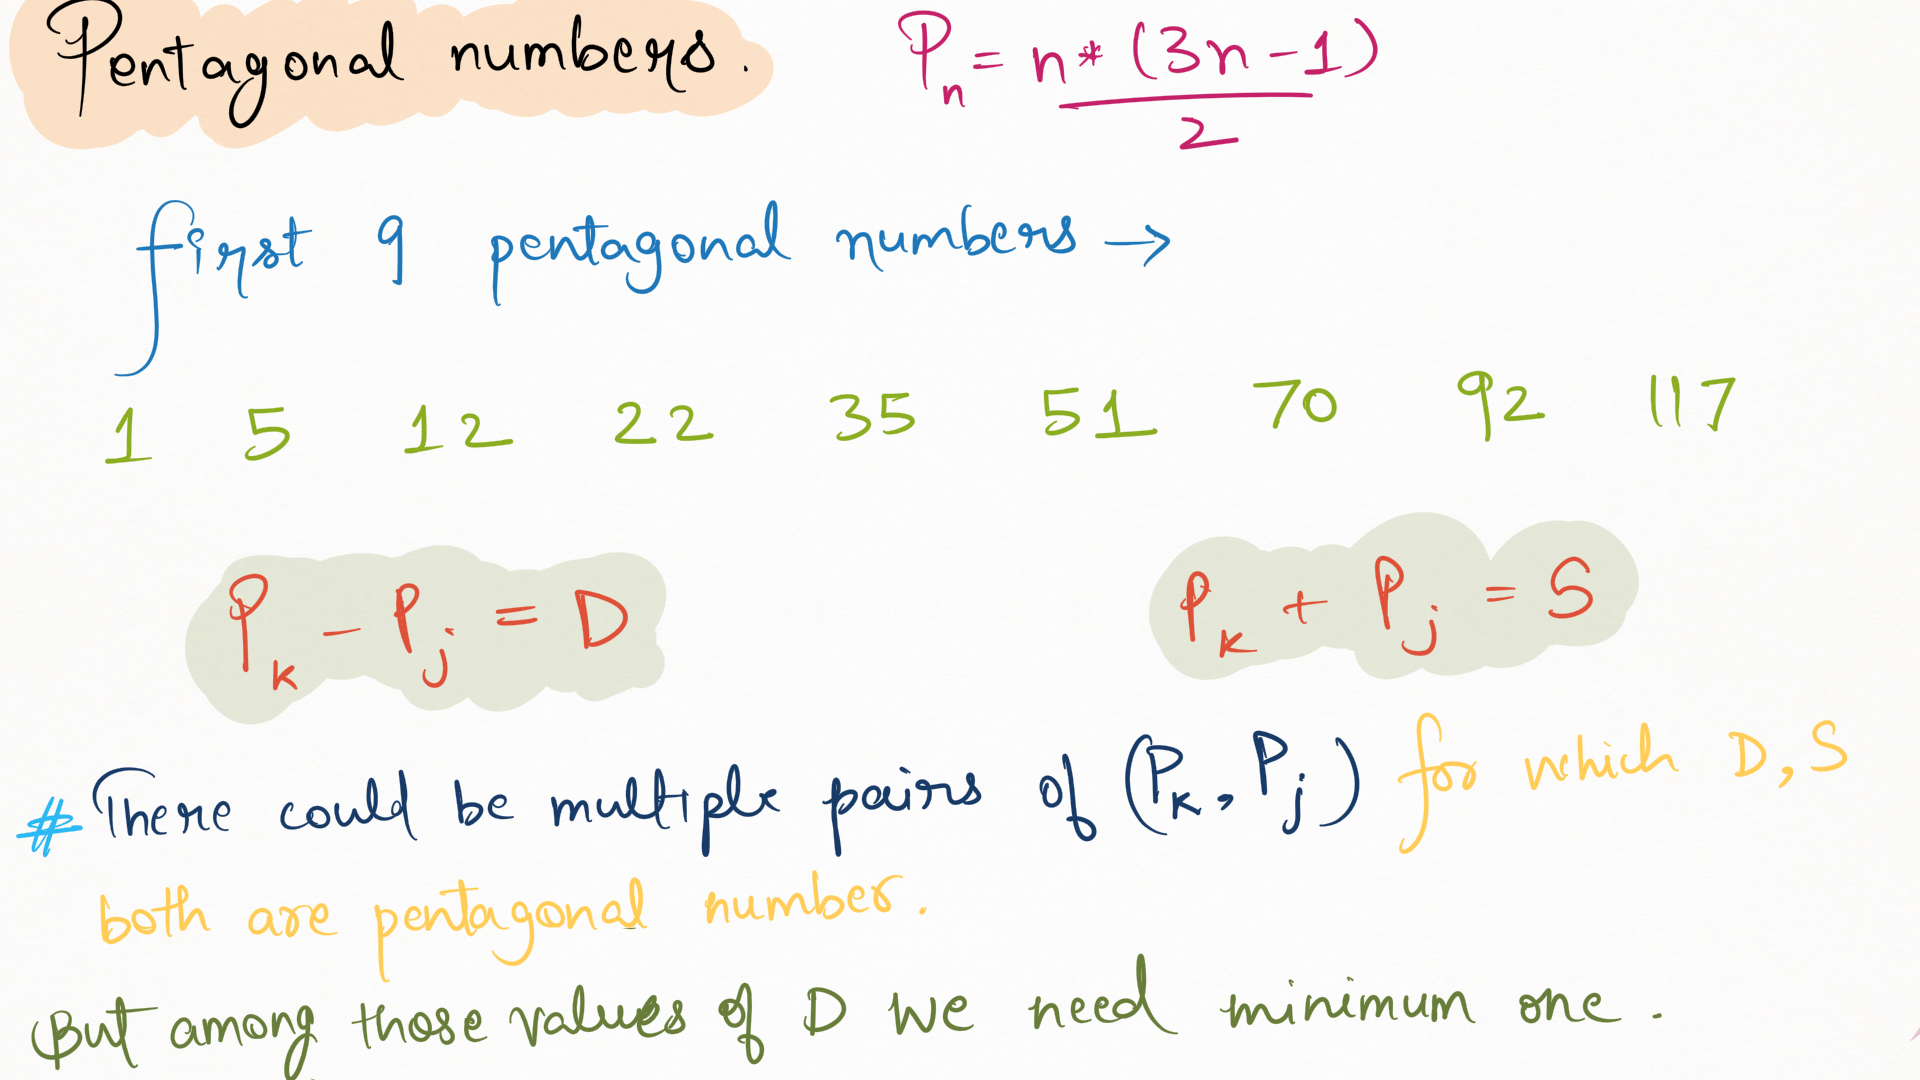 Pentagonal numbers.
P_n = n * (3n - 1) / 2
first 9 pentagonal numbers →
1 5 12 22 35 51 70 92 117
P_k - P_j = D
P_k + P_j = S
# There could be multiple pairs of (P_k, P_j) for which D, S
both are pentagonal number.
But among those values of D we need minimum one.